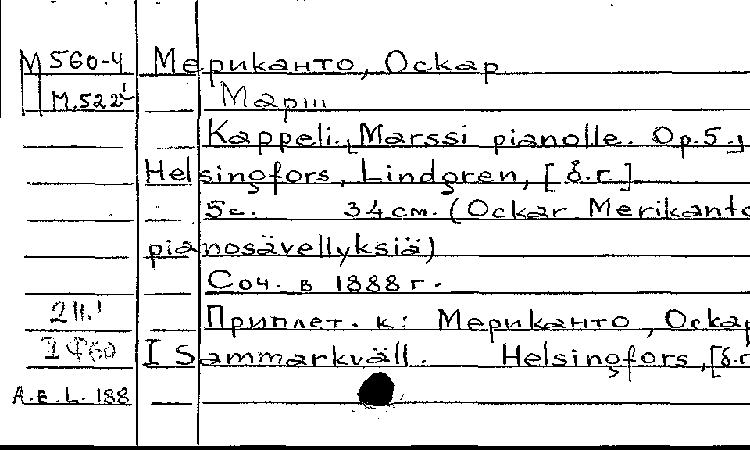 М 560-4 Мериканто, Оскар
М.522 Марш
Kappeli. Marssi pianolle. Op.5.
Helsingfors, Lindgren, [б.г.]
5с. 34см. (Ockar Merikanto
pianosävellyksiä)
Соч. в 1888 г.
211.1 Приплет. к: Мериканто, Оскар
I Sammarkväll. Helsingfors, [б.г
A.E.L. 188